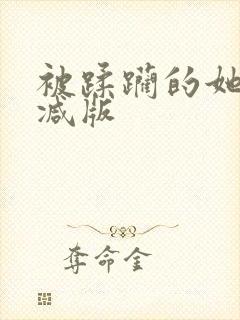 被蹂躏的她
减版
夺命金